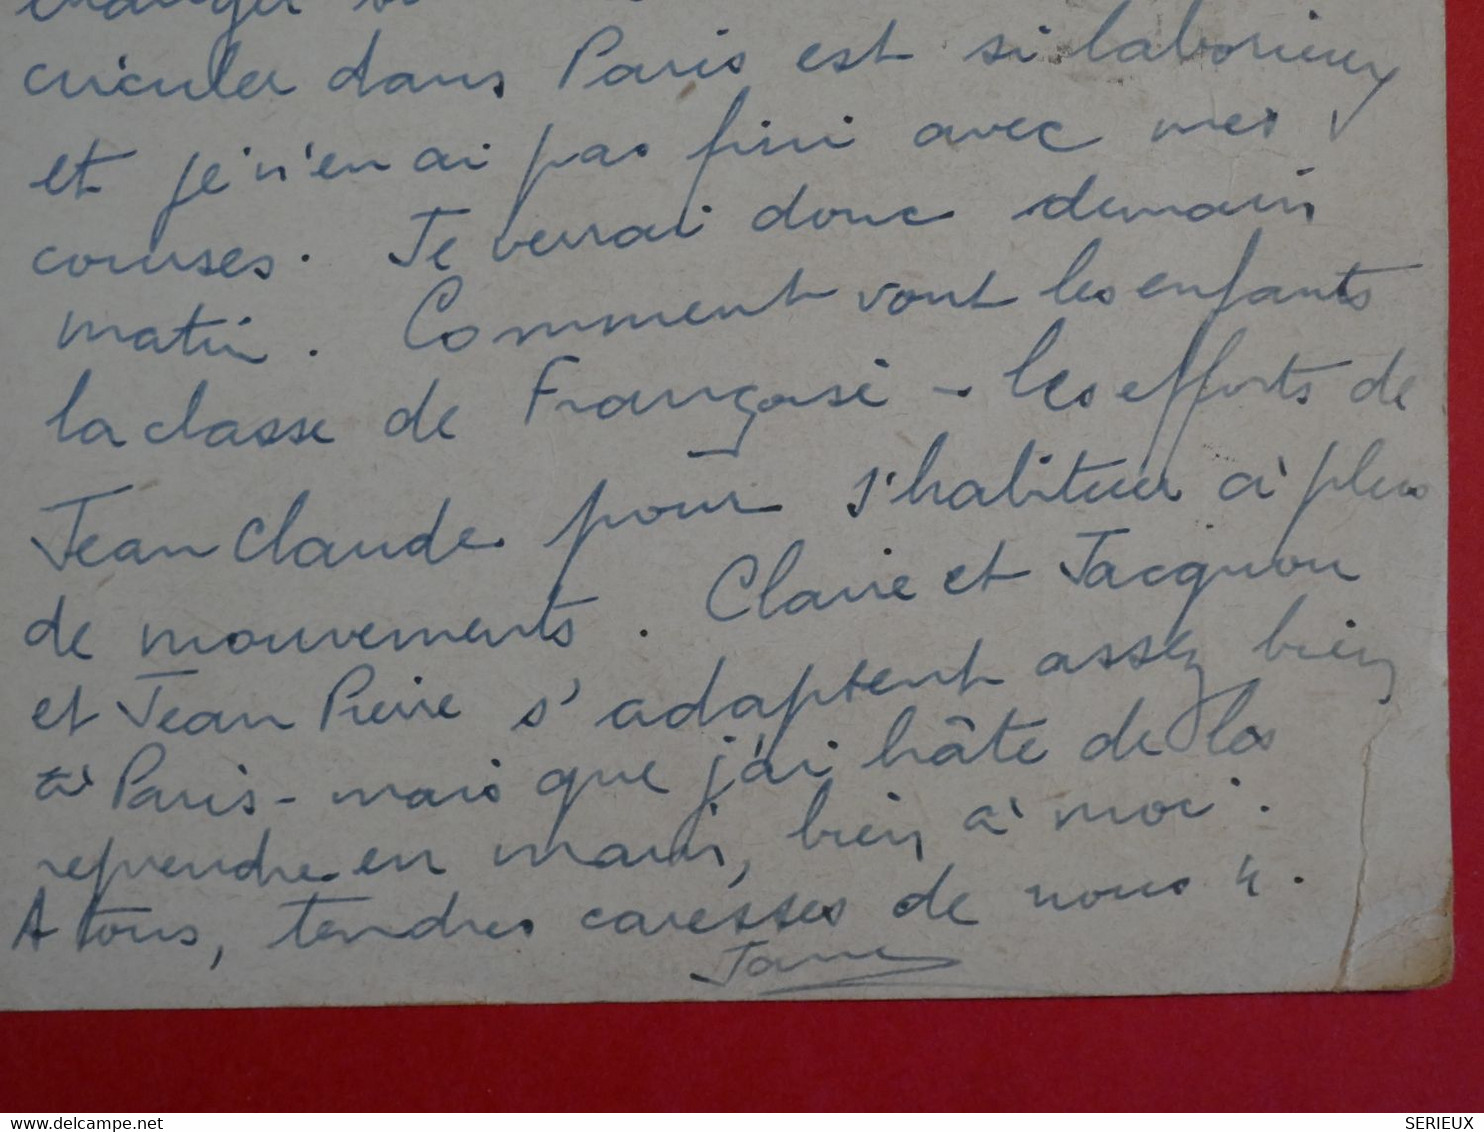 circuler dans Paris est si laborieux
et je n'en ai pas fini avec mes
courses. Je verrai donc demain
matin. Comment vont les enfants
la classe de Françoise - les efforts de
Jean Claude pour s'habituer à plus
de mouvements. Claire et Jacquou
et Jean Pierre s'adaptent assez bien
à Paris - mais que j'ai hâte de les
reprendre en main, bien à moi.
A tous, tendres caresses de nous 4.
SERIEUX